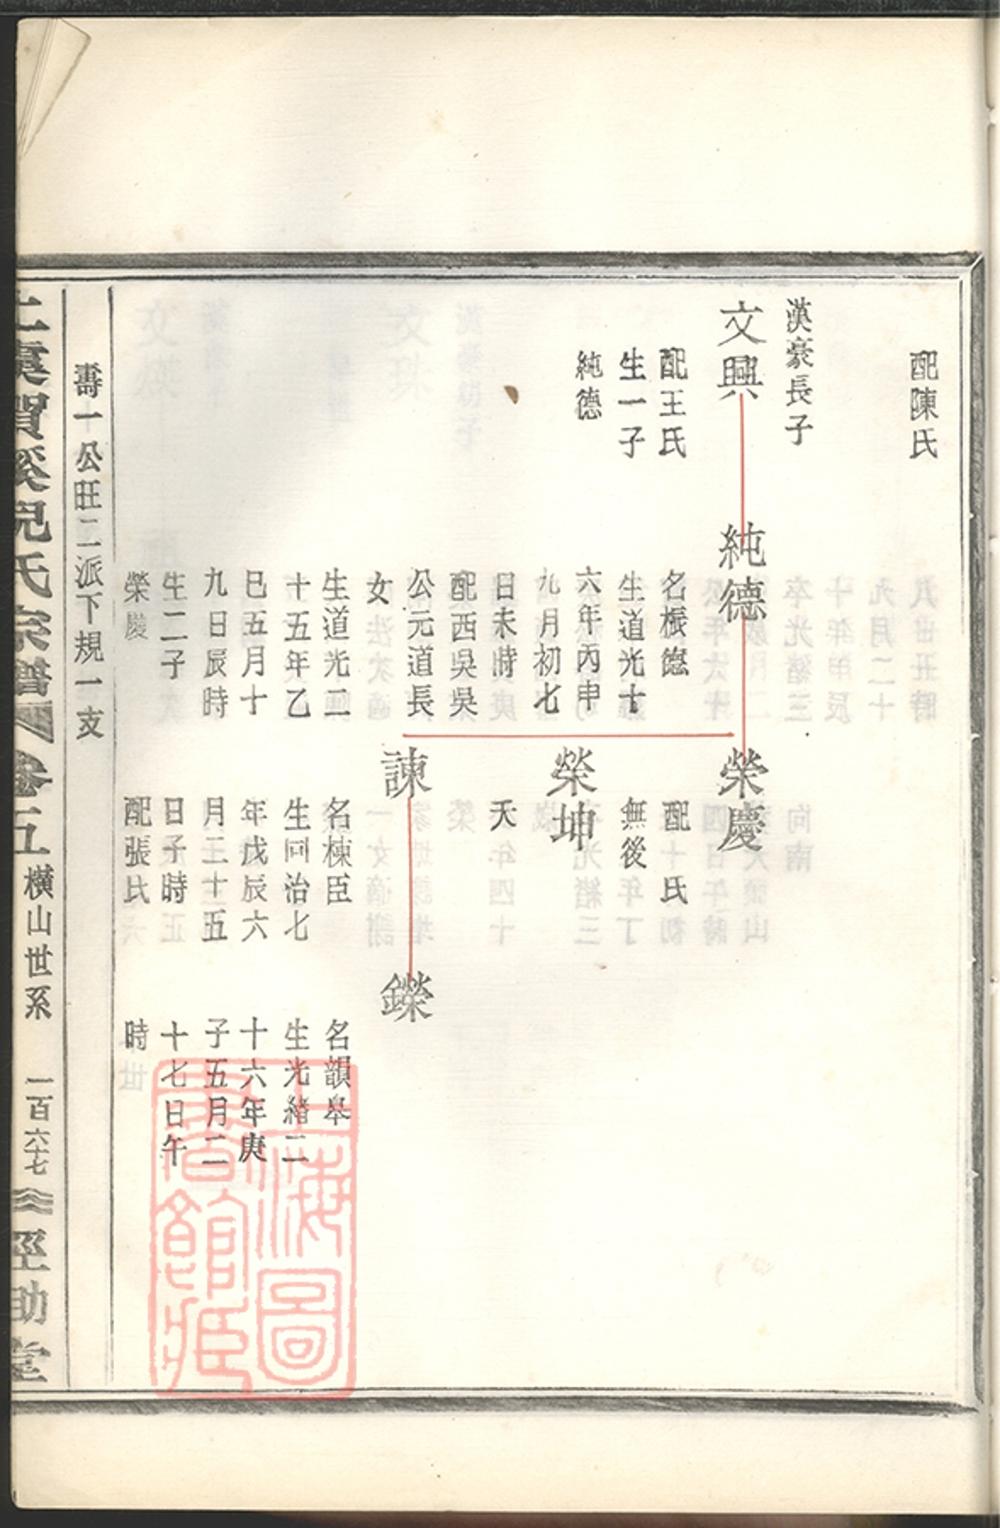 配陳氏
漢豪長子
文興
配王氏
生一子
純德
純德
名桭德
生道光十
六年丙申
九月初七
日未時
配西吳吳
公元道長
女
生道光二
十五年乙
巳五月十
九日辰時
生二子
榮慶
榮慶
配 氏
無後
榮坤
夭
諫
名棟臣
生同治七
年戊辰六
月二十五
日子時
配張氏
鑅
名韻皋
生光緒二
十六年庚
子五月二
十七日午
時
壽一公旺二派下規一支
上虞賀溪倪氏宗譜
卷五
橫山世系
一百六十七
經助堂
上海圖書館藏